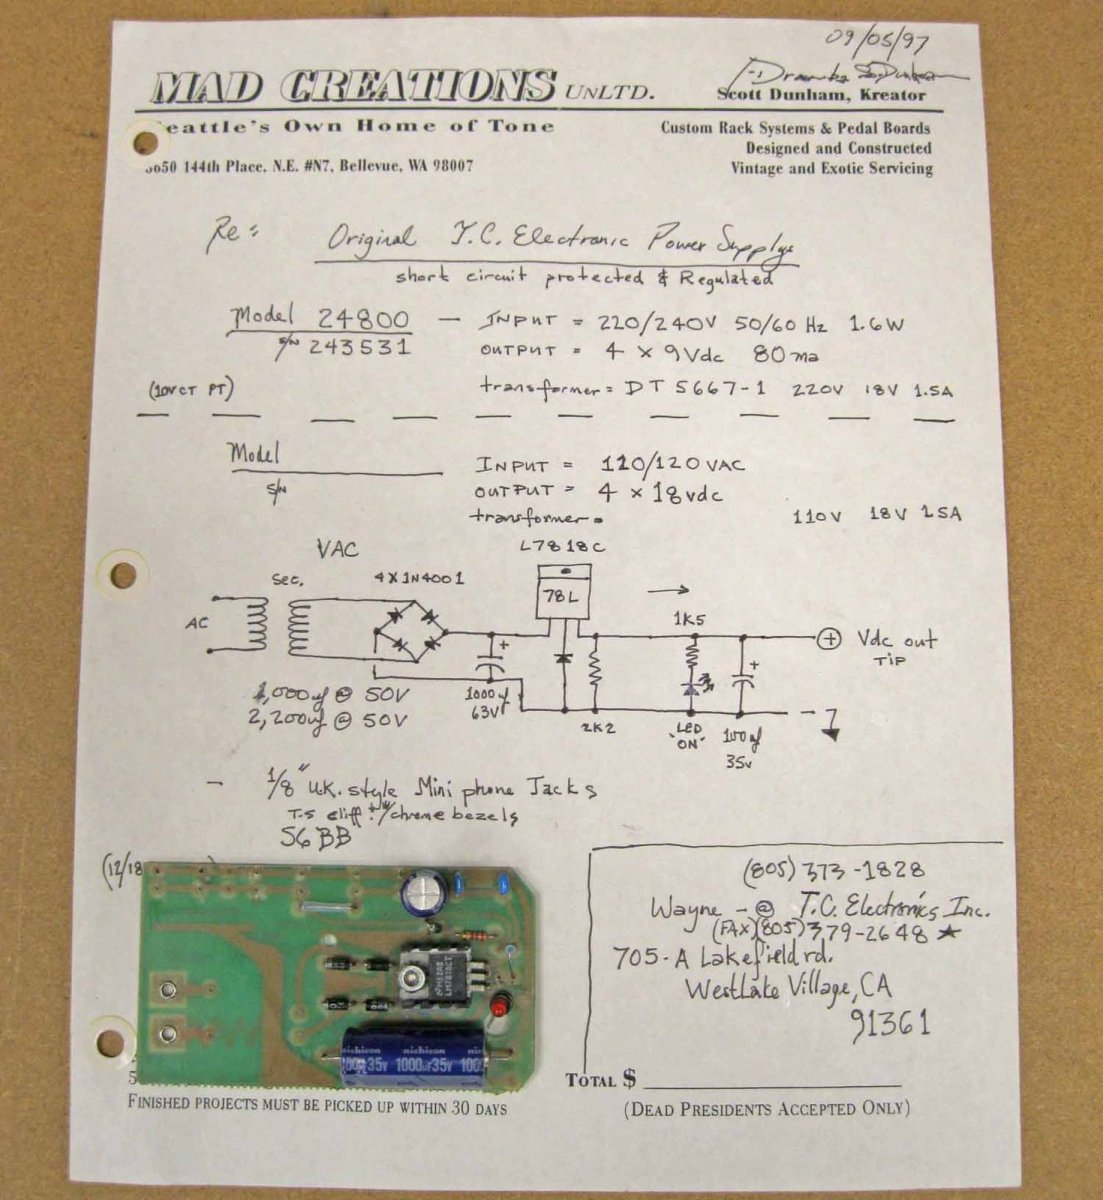 09/05/97
MAD CREATIONS UNLTD.
Scott Dunham, Kreator
eattle's Own Home of Tone
Custom Rack Systems & Pedal Boards
Designed and Constructed
Vintage and Exotic Servicing
5650 144th Place, N.E. #N7, Bellevue, WA 98007
Re: Original T.C. Electronic Power Supplys
short circuit protected & Regulated
Model 24800 — INPUT = 220/240V 50/60 Hz 1.6W
S/N 243531
OUTPUT = 4 x 9Vdc 80ma
(10VCT PT) transformer = DT5667-1 220V 18V 1.5A
Model
S/N
INPUT = 110/120 VAC
OUTPUT = 4 x 18vdc
transformer = 110V 18V 1.5A
VAC
L7818C
Sec.
4X1N4001
78L
AC
1K5
+
+
+ Vdc out
TIP
1,000uf @ 50V
2,200uf @ 50V
1000uf
63V
2K2
LED
"ON"
100uf
35v
- 1/8" U.K. style Mini phone Jacks
T-S cliff w/chrome bezels
S6BB
(12/18
(805) 373-1828
Wayne - @ T.C. Electronics Inc.
(FAX)(805) 379-2648 *
705-A Lakefield rd.
WestLake Village, CA
91361
LM7818CT
nichicon nichicon nich
35V 1000uF35V 100
TOTAL $
FINISHED PROJECTS MUST BE PICKED UP WITHIN 30 DAYS
(DEAD PRESIDENTS ACCEPTED ONLY)